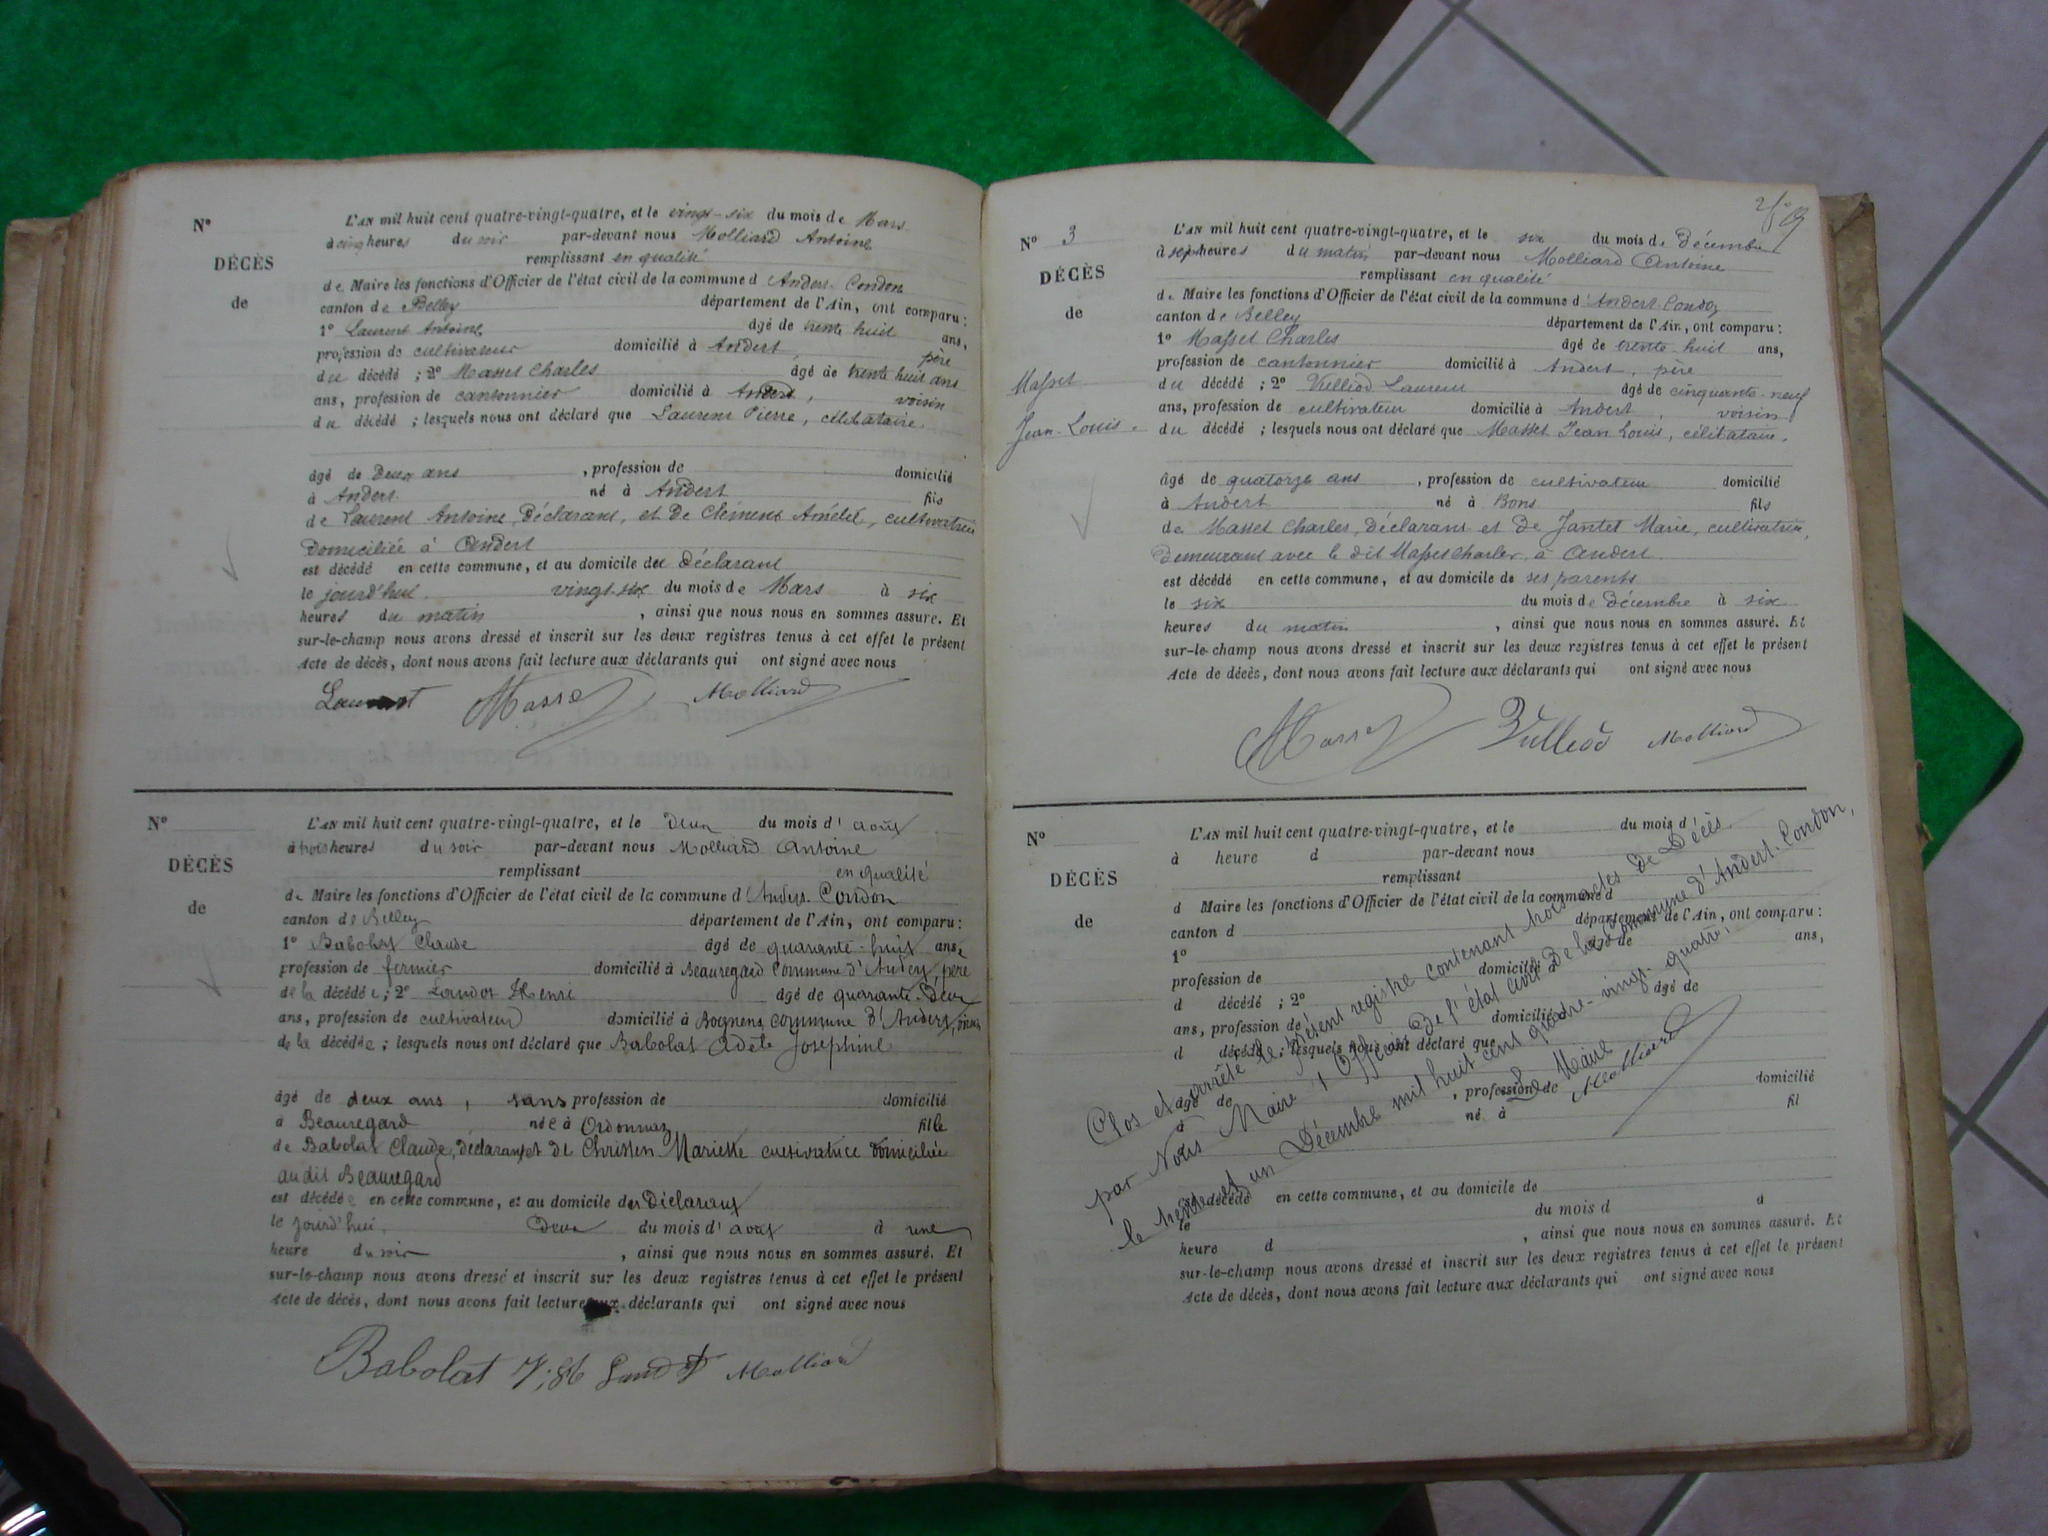 N°
DÉCÈS
de
L'AN mil huit cent quatre-vingt-quatre, et le vingt-six du mois de Mars
à cinq heures du soir par-devant nous Molliard Antoine
remplissant en qualité
de Maire les fonctions d'Officier de l'état civil de la commune d'Andert-Condon
canton de Belley département de l'Ain, ont comparu :
1° Laurent Antoine âgé de trente huit ans,
profession de cultivateur domicilié à Andert père
du décédé ; 2° Masset Charles âgé de trente huit ans
ans, profession de cantonnier domicilié à Andert, voisin
du décédé ; lesquels nous ont déclaré que Laurent Pierre, célibataire.
âgé de Deux ans , profession de domicilié
à Andert né à Andert fils
de Laurent Antoine, Déclarant, et de Clément Amélie, cultivatrice
Domiciliée à Andert
est décédé en cette commune, et au domicile du Déclarant
le jourd'hui vingt-six du mois de Mars à six
heures du matin , ainsi que nous nous en sommes assuré. Et
sur-le-champ nous avons dressé et inscrit sur les deux registres tenus à cet effet le présent
Acte de décès, dont nous avons fait lecture aux déclarants qui ont signé avec nous
Laurent Masset Molliard
N°
DÉCÈS
de
L'AN mil huit cent quatre-vingt-quatre, et le Deux du mois d'août
à trois heures du soir par-devant nous Molliard Antoine
remplissant en qualité
de Maire les fonctions d'Officier de l'état civil de la commune d'Andert-Condon
canton de Belley département de l'Ain, ont comparu :
1° Babolat Claude âgé de quarante-huit ans,
profession de fermier domicilié à Beauregard commune d'Andert, père
de la décédée ; 2° Landot Henri âgé de quarante-Deux
ans, profession de cultivateur domicilié à Bognens, commune d'Andert, voisin
de la décédée ; lesquels nous ont déclaré que Babolat Adèle Joséphine
âgé de deux ans , sans profession de domicilié
à Beauregard née à Ordonnaz fille
de Babolat Claude, déclarant et de Christin Mariette cultivatrice domiciliée
au dit Beauregard
est décédée en cette commune, et au domicile des Déclarant
le jourd'hui Deux du mois d'août à une
heure du soir , ainsi que nous nous en sommes assuré. Et
sur-le-champ nous avons dressé et inscrit sur les deux registres tenus à cet effet le présent
Acte de décès, dont nous avons fait lecture aux déclarants qui ont signé avec nous
Babolat Molliard
N° 3
DÉCÈS
de
Masset
Jean-Louis
L'AN mil huit cent quatre-vingt-quatre, et le six du mois de Décembre
à sept heures du matin par-devant nous Molliard Antoine
remplissant en qualité
de Maire les fonctions d'Officier de l'état civil de la commune d'Andert-Condon
canton de Belley département de l'Ain, ont comparu :
1° Masset Charles âgé de trente-huit ans,
profession de cantonnier domicilié à Andert, père
du décédé ; 2° Vulliod Laurent âgé de cinquante-neuf
ans, profession de cultivateur domicilié à Andert, voisin
du décédé ; lesquels nous ont déclaré que Masset Jean Louis, célibataire.
âgé de quatorze ans , profession de cultivateur domicilié
à Andert né à Bons fils
de Masset Charles, Déclarant et de Jantet Marie, cultivatrice,
Demeurant avec le dit Masset Charles, à Andert
est décédé en cette commune, et au domicile de ses parents
le six du mois de décembre à six
heures du matin , ainsi que nous nous en sommes assuré. Et
sur-le-champ nous avons dressé et inscrit sur les deux registres tenus à cet effet le présent
Acte de décès, dont nous avons fait lecture aux déclarants qui ont signé avec nous
Masset Vulliod Molliard
N°
DÉCÈS
de
L'AN mil huit cent quatre-vingt-quatre, et le du mois d
à heure d par-devant nous
remplissant
d Maire les fonctions d'Officier de l'état civil de la commune d
canton d département de l'Ain, ont comparu :
1° âgé de ans,
profession de domicilié
d décédé ; 2° âgé de
ans, profession de domicilié
d décédé ; lesquels nous ont déclaré que
âgé de , profession de domicilié
à né à fil
est décédé en cette commune, et au domicile de
le du mois d à
heure d , ainsi que nous nous en sommes assuré. Et
sur-le-champ nous avons dressé et inscrit sur les deux registres tenus à cet effet le présent
Acte de décès, dont nous avons fait lecture aux déclarants qui ont signé avec nous
Clos et arrêté le présent registre contenant trois actes de Décès
par Nous Maire et Officier De l'état civil De la commune d'Andert-Condon,
le trente et un Décembre mil huit cent quatre-vingt-quatre.
Le Maire
Molliard